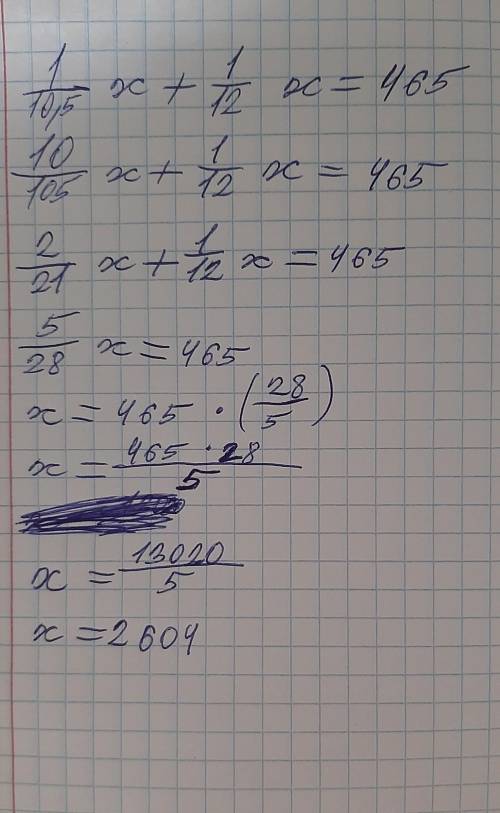 1/10,5 x + 1/12 x = 465
10/105 x + 1/12 x = 465
2/21 x + 1/12 x = 465
5/28 x = 465
x = 465 · (28/5)
x = 465 · 28/5
x = 13020/5
x = 2604